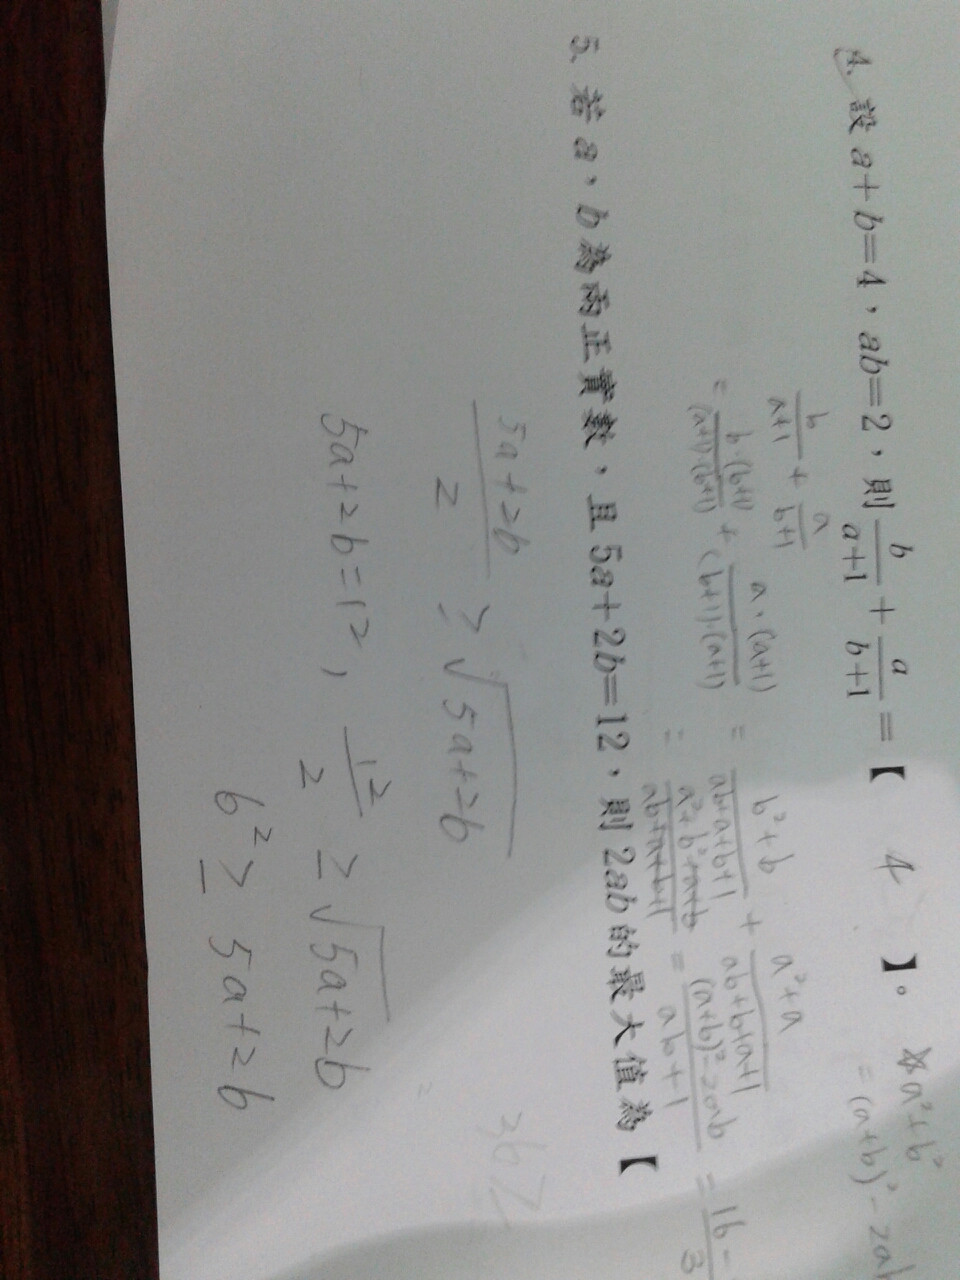 4. 設 a+b=4，ab=2，則 b/(a+1) + a/(b+1) =【 4 】。 a²+b²
= (a+b)² - 2ab
b/(a+1) + a/(b+1)
= b·(b+1)/(a+1)·(b+1) + a·(a+1)/(b+1)·(a+1) = b²+b/ab+a+b+1 + a²+a/ab+b+a+1
= a²+b²+a+b/ab+a+b+1 = (a+b)²-2ab/ab+1 = 16-/3
5. 若 a，b 為兩正實數，且 5a+2b=12，則 2ab 的最大值為【
5a+2b/2 ≥ √5a+2b
5a+2b=12, 12/2 ≥ √5a+2b
6² ≥ 5a+2b